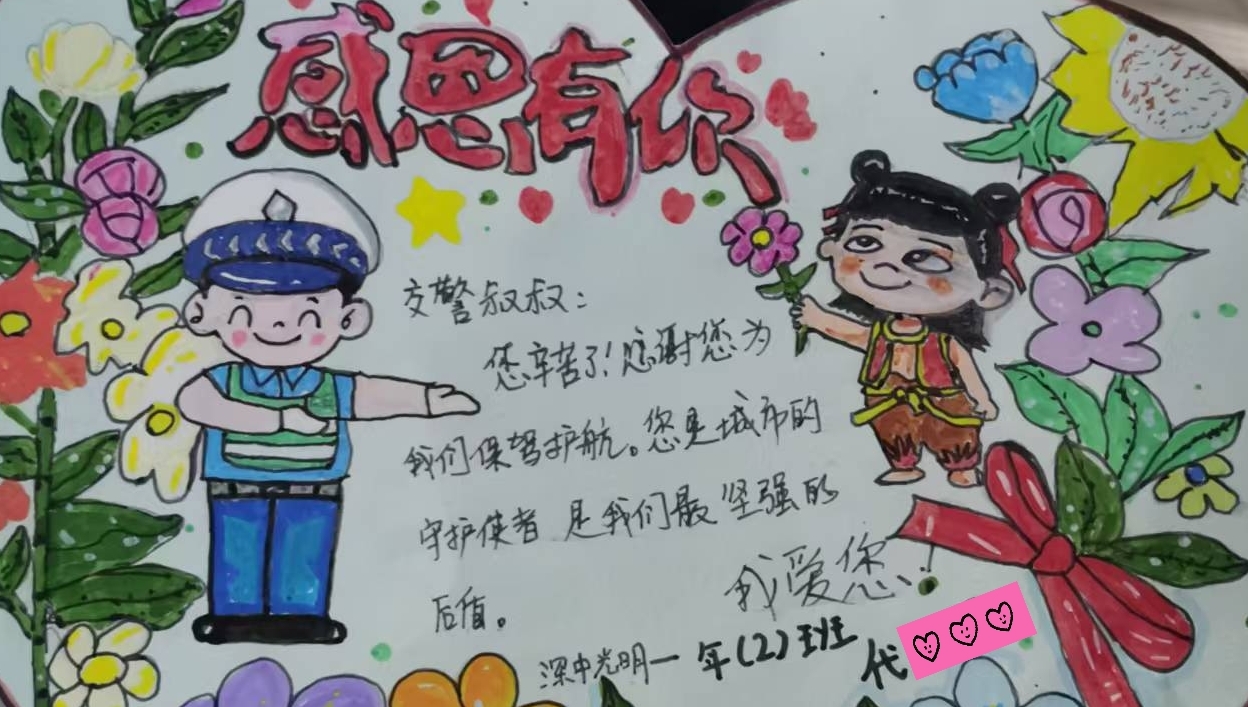 感恩有你
交警叔叔：
您辛苦了！感谢您为
我们保驾护航。您是城市的
守护使者 是我们最坚强的
后盾。
我爱您！
深中光明一年(2)班 代